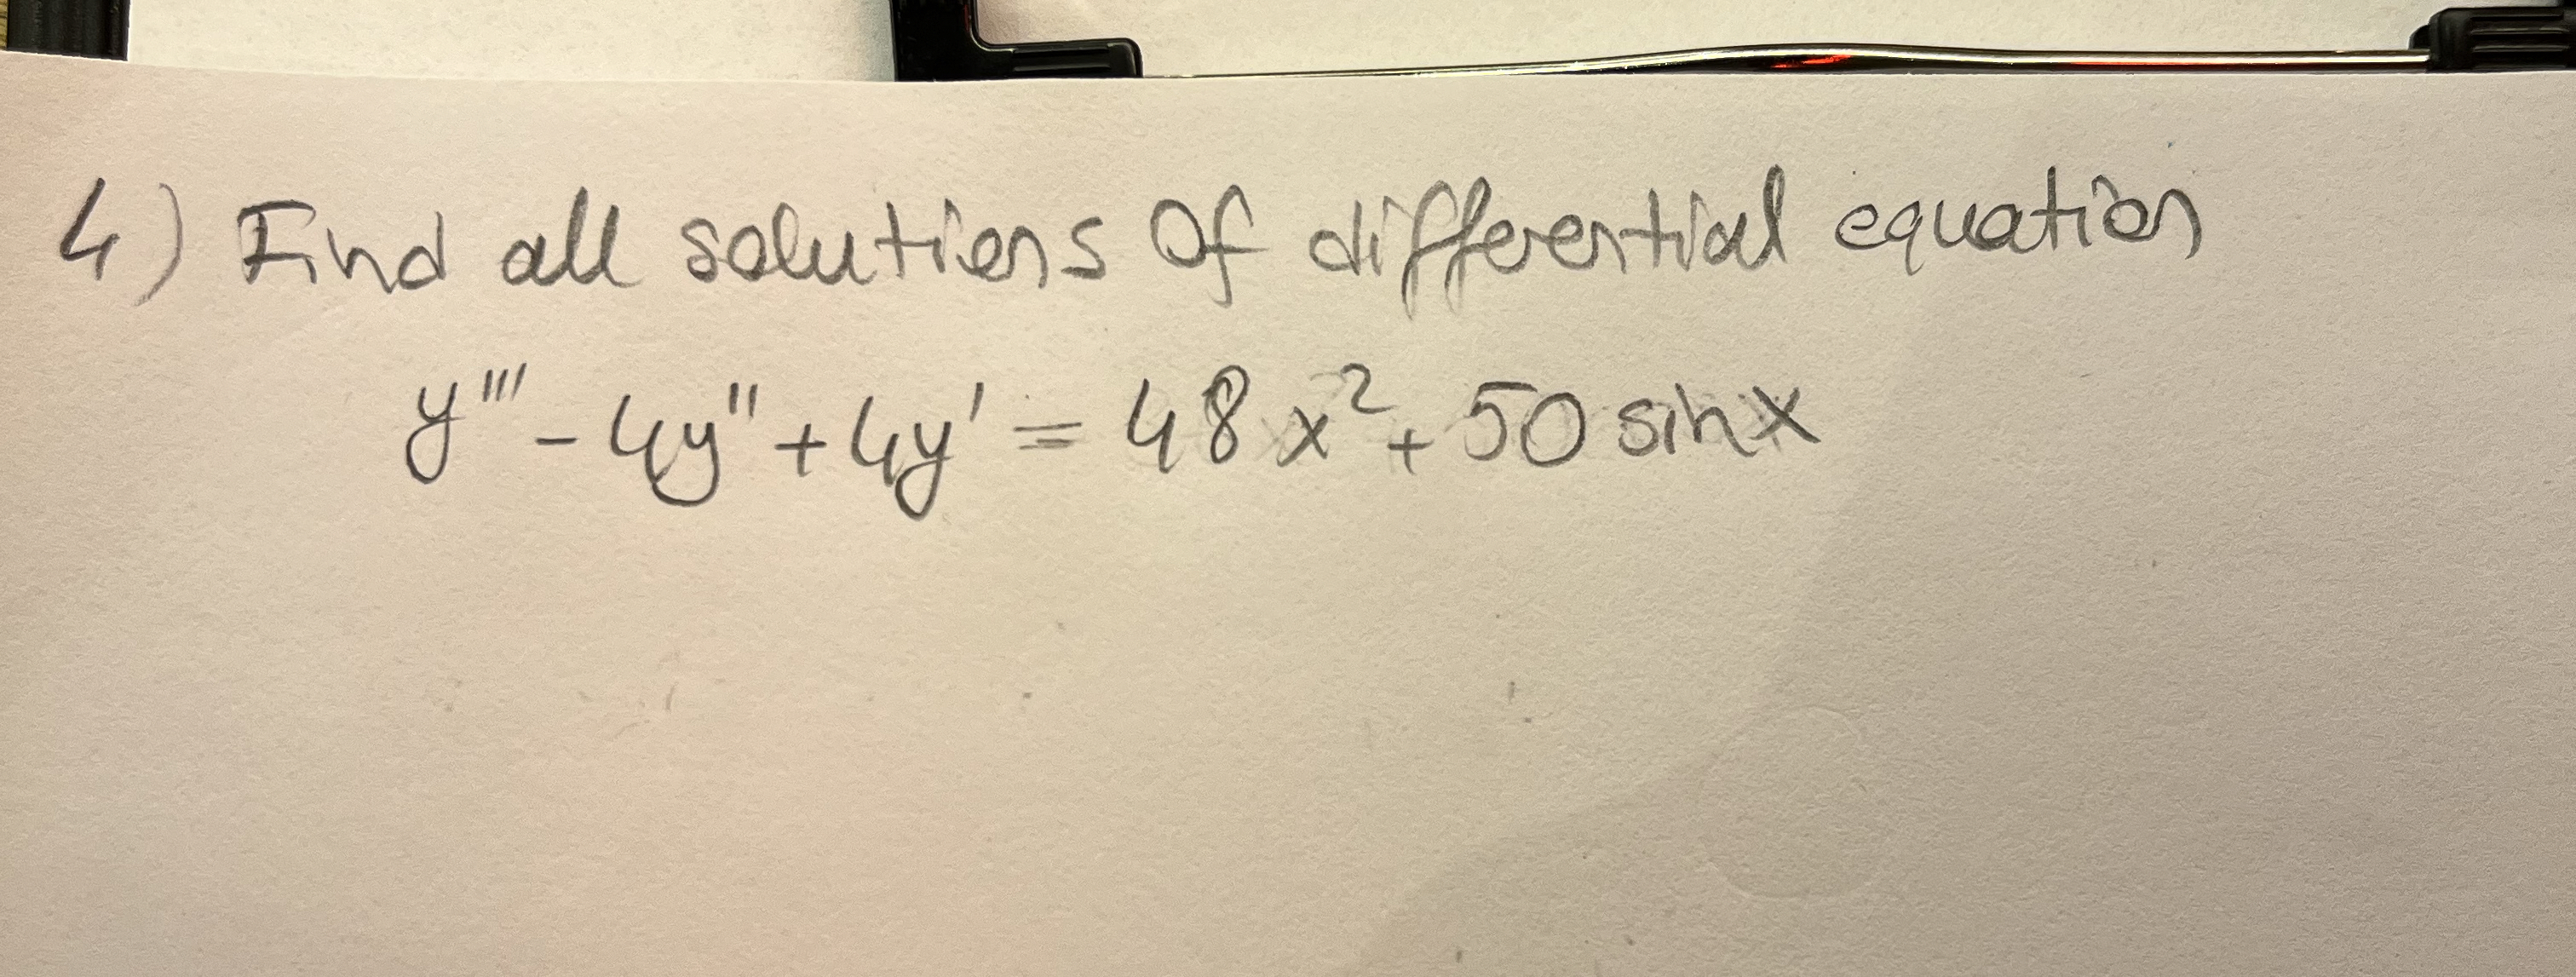 4) Find all solutions of differential equation
y''' - 4y'' + 4y' = 48x² + 50 sin x